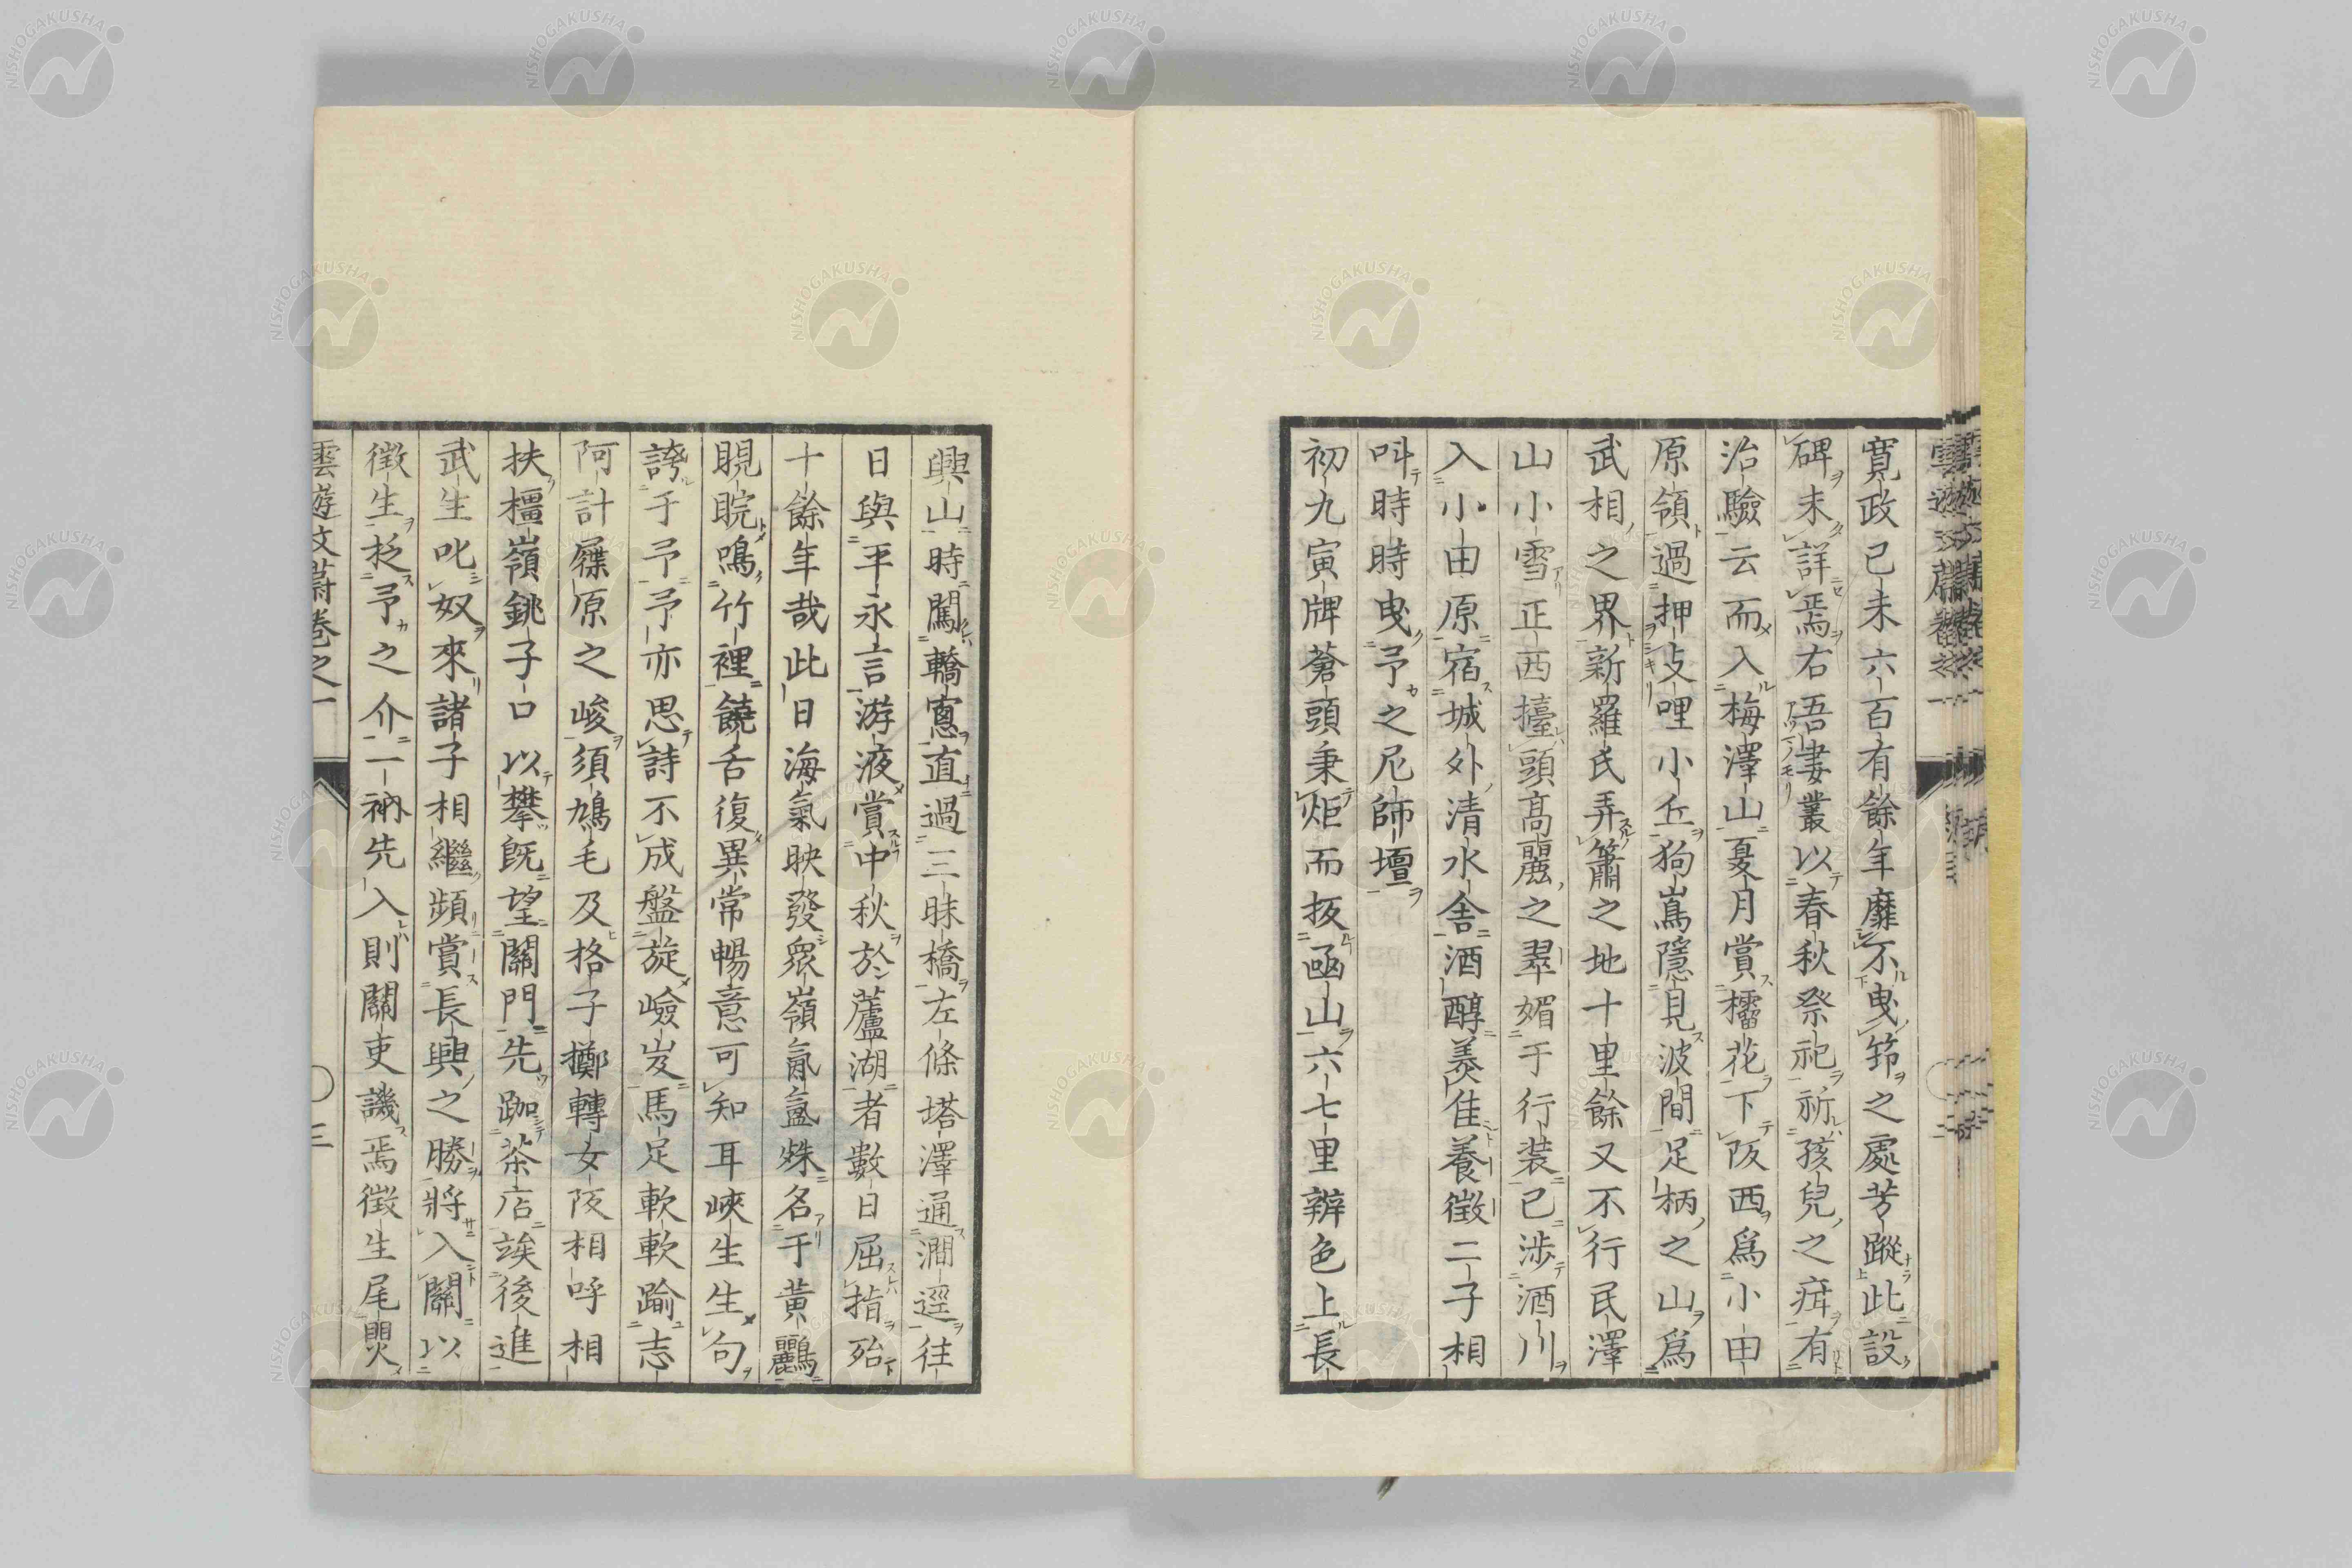 寛政己未六百有餘年靡不曳筇之處芳蹤此設
碑未詳焉右吾妻叢以春秋祭祀祈孩兒之痏有
治驗云而入梅澤山夏月賞櫺花下阪西爲小田
原領過押攴哩小丘狗嶌隱見波間足柄之山爲
武相之界新羅氏弄簫之地十里餘又不行民澤
山小雪正西擡頭高麗之翠媚于行装已涉酒川
入小田原宿城外清水舍酒醇羡佳養徵二子相
叫時時曳予之尼師壇
初九寅牌蒼頭秉炬而扳凾山六七里辨色上長
興山時闖轎窻直過三昧橋左條塔澤通澗逕往
日與平永言游液賞中秋於蘆湖者數日屈指殆
十餘年哉此日海氣映發衆嶺氤氳姝名于黃鸝
睍睆鳴竹裡饒舌復異常暢意可知耳峽生生句
誇于予予亦思詩不成盤旋嶮岌馬足軟軟踰志
阿計屧原之峻須鳩毛及格子擲轉女阪相呼相
扶橿嶺銚子口以攀既望關門先跏茶店竢後進
武生叱奴來諸子相繼頻賞長興之勝將入關以
徵生抂予之介一衲先入則關吏譏焉徵生尾閴
雲遊文蔚卷之一 〇三